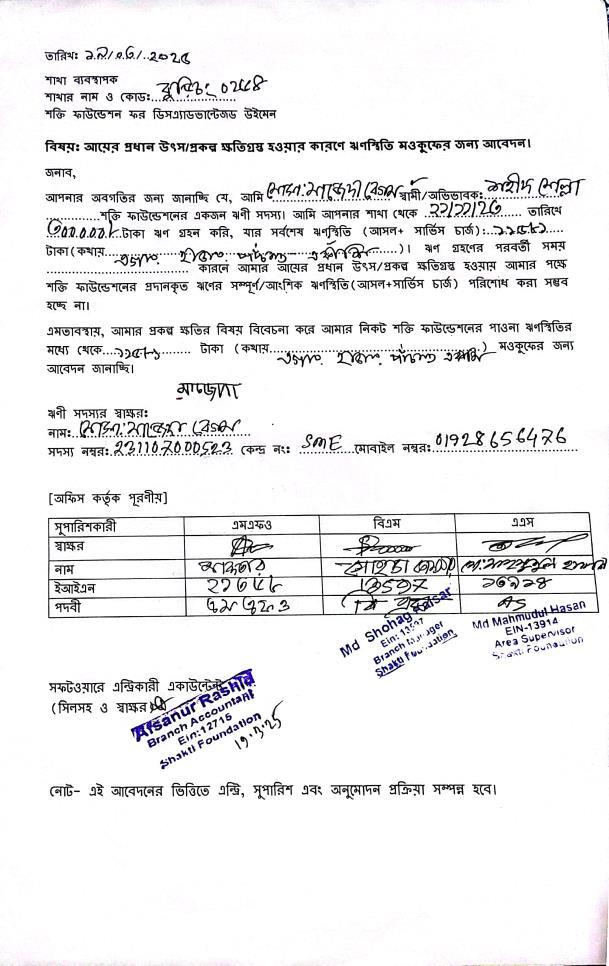 তারিখ: ১৯/০৩/২০২৫
শাখা ব্যবস্থাপক
শাখার নাম ও কোড: বুড়িচং 0248
শক্তি ফাউন্ডেশন ফর ডিসএ্যাডভান্টেজড উইমেন
বিষয়: আয়ের প্রধান উৎস/প্রকল্প ক্ষতিগ্রস্থ হওয়ার কারণে ঋণস্থিতি মওকুফের জন্য আবেদন।
জনাব,
আপনার অবগতির জন্য জানাচ্ছি যে, আমি বেগম স্বামী/অভিভাবক: শহীদ মোল্লা
শক্তি ফাউন্ডেশনের একজন ঋণী সদস্য। আমি আপনার শাখা থেকে 22/11/23 তারিখে
টাকা ঋণ গ্রহন করি, যার সর্বশেষ ঋণস্থিতি (আসল+ সার্ভিস চার্জ):
টাকা(কথায় হাজার )। ঋণ গ্রহণের পরবর্তী সময়
কারনে আমার আয়ের প্রধান উৎস/প্রকল্প ক্ষতিগ্রস্থ হওয়ায় আমার পক্ষে
শক্তি ফাউন্ডেশনের প্রদানকৃত ঋণের সম্পূর্ণ/আংশিক ঋণস্থিতি(আসল+সার্ভিস চার্জ) পরিশোধ করা সম্ভব
হচ্ছে না।
এমতাবস্থায়, আমার প্রকল্প ক্ষতির বিষয় বিবেচনা করে আমার নিকট শক্তি ফাউন্ডেশনের পাওনা ঋণস্থিতির
মধ্যে থেকে টাকা (কথায় হাজার ) মওকুফের জন্য
আবেদন জানাচ্ছি।
ঋণী সদস্যর স্বাক্ষর:
নাম: বেগম
সদস্য নম্বর: 231107000523 কেন্দ্র নং: SME মোবাইল নম্বর: 01928656476
[অফিস কর্তৃক পূরণীয়]
সুপারিশকারী এমএফও বিএম এএস
স্বাক্ষর
নাম
ইআইএন 13597 ১৩৯১৪
পদবী এম এফ ও AS
Md Shohag Kaisar
Ein: 13597
Branch Manager
Shakti Foundation
Md Mahmudul Hasan
EIN-13914
Area Supervisor
Shakti Foundation
সফটওয়ারে এন্ট্রিকারী একাউন্টেন্ট
(সিলসহ ও স্বাক্ষর)
Afsanur Rashid
Branch Accountant
Ein:12716
Shakti Foundation
19.3.25
নোট- এই আবেদনের ভিত্তিতে এন্ট্রি, সুপারিশ এবং অনুমোদন প্রক্রিয়া সম্পন্ন হবে।